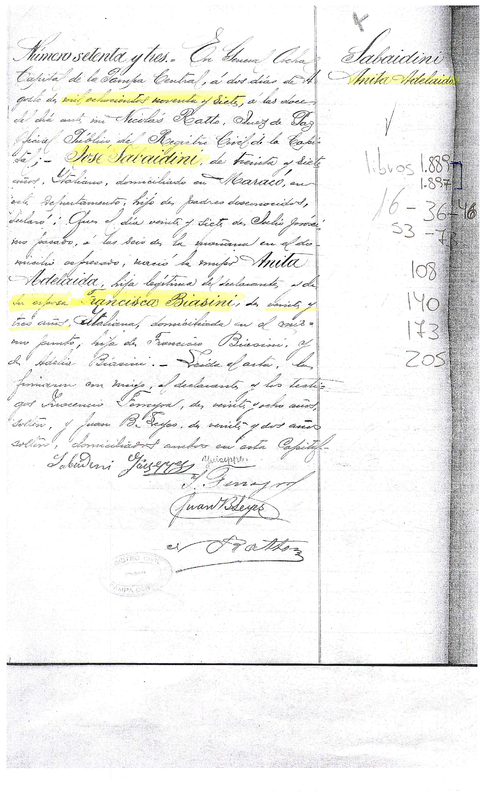 Número setenta y tres.- En General Acha
Capital de la Pampa Central, a dos dias de A
gosto de mil ochocientos noventa y siete, a las doce
de dia ante mi Nicolás Ratto, Juez de Paz
Oficial Público del Registro Civil de la Capi
tal;- José Sabaidini, de treinta y siete
años, Italiano, domiciliado en Maracó, en
este departamento, hijo de padres desconocidos,
declaró: Que el dia veinte y siete de Julio próxi
mo pasado, a las seis de la mañana en el do
micilio expresado, nació la mujer Anita
Adelaida, hija legítima del declarante, y de
su esposa Francisca Biasini, de veinte y
tres años, Italiana, domiciliada en el mis-
mo punto, hija de Francisco Biasini, y
de Adelia Biasini.- Leida el acta, la
firmaron con migo, el declarante y los testi
gos Inocencio, de veinte y ocho años,
soltero, y Juan B. Leyes, de veinte y dos años
soltero, domiciliados ambos en esta Capital-
Sabaidini Giuseppe
Giuseppe
Juan B Leyes
N Ratto
Sabaidini
Anita Adelaida
libros 1.889
1.897
16-36-46
53-73
108
140
173
205
REGISTRO CIVIL
PAMPA CENTRAL